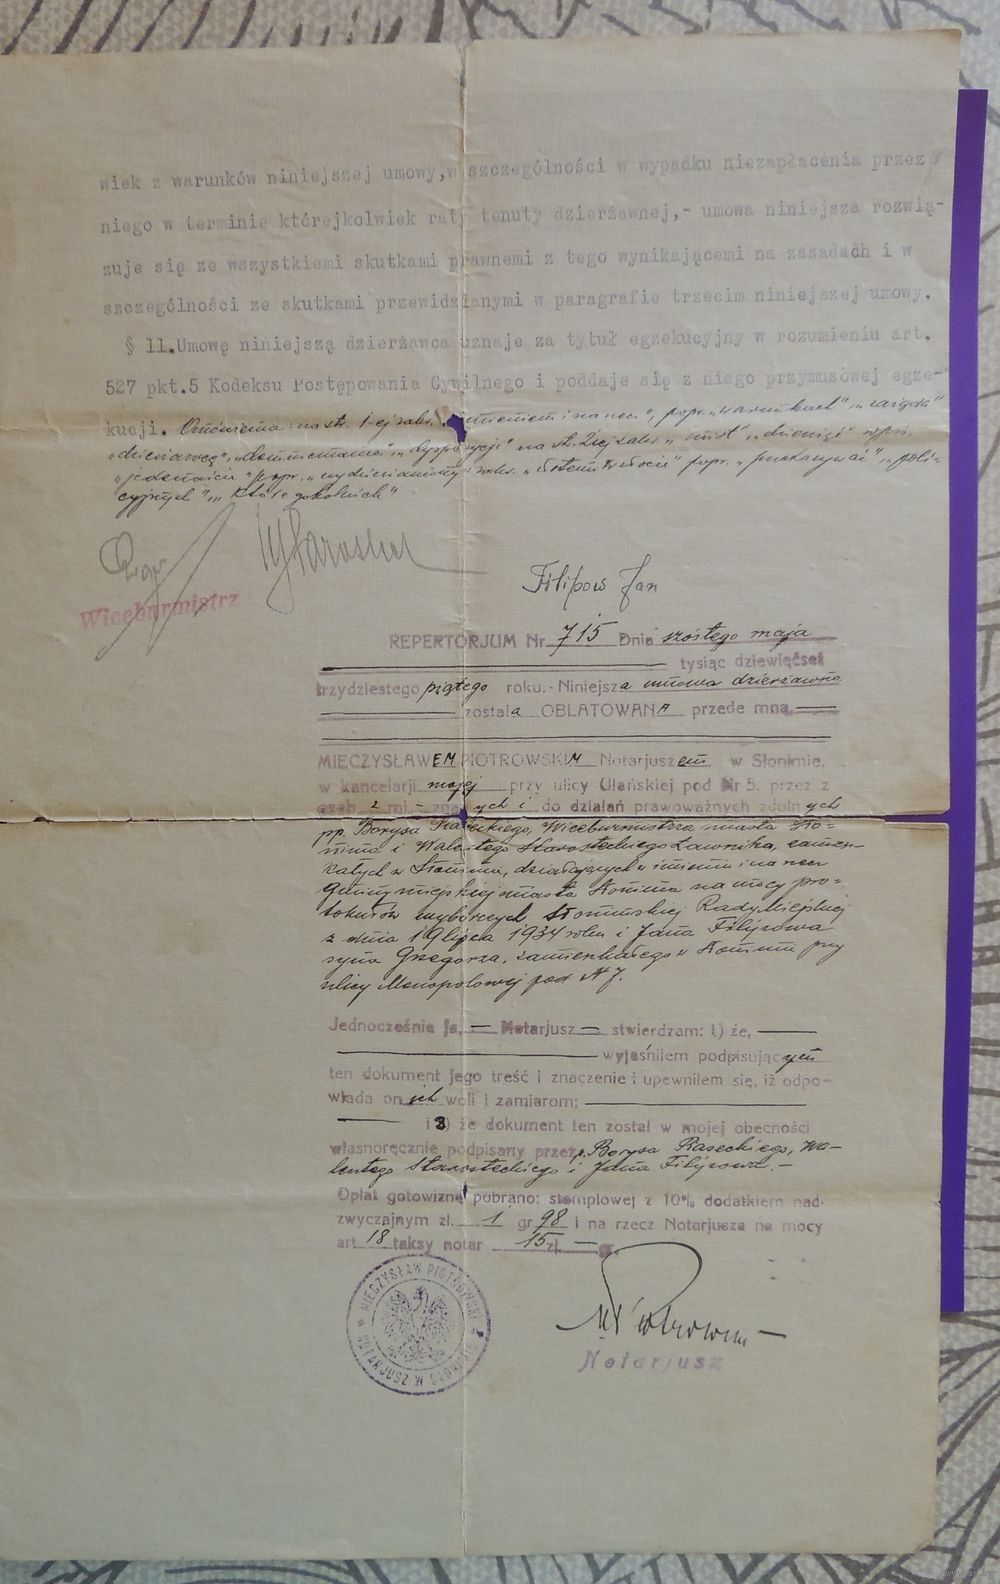 wiek z warunków niniejszej umowy,w szczególności w wypadku niezapłacenia przez
niego w terminie którejkolwiek raty tenuty dzierżawnej,- umowa niniejsza rozwią-
zuje się ze wszystkiemi skutkami prawnemi z tego wynikającemi na zasadach i w
szczególności ze skutkami przewidzianymi w paragrafie trzecim niniejszej umowy.
§ 11.Umowę niniejszą dzierżawca uznaje za tytuł egzekucyjny w rozumieniu art.
527 pkt.5 Kodeksu Postępowania Cywilnego i poddaje się z niego przymusowej egze-
kucji. Omówienia: na str. 1-ej imieniem i na rzecz", popr. "warunkach"
"dzierżawcę", "dyspozycji" na str. 2iej
"jedenaście" popr. popr. "przekazywać" "poli-
cyjnych",
Wiceburmistrz
Filipow Jan
REPERTORJUM Nr 715 Dnia szóstego maja
tysiąc dziewięćset
trzydziestego piątego roku.- Niniejsza umowa dzierżawna
została OBLATOWANA przede mną
MIECZYSŁAWEM PIOTROWSKIM Notarjuszem w Słonimie,
w kancelarji mojej przy ulicy Ułańskiej pod Nr 5. przez z
osób 2 mi - znanych i do działań prawoważnych zdolnych
pp. Borysa Raseckiego, Wiceburmistrza miasta Sło-
nima i Walentego Starosteckiego Ławnika, zamiesz-
kałych w Słonimie, działających w imieniu i na rzecz
Gminy miejskiej miasta Słonima na mocy pro-
tokułów wyborczych Słonimskiej Rady Miejskiej
z dnia 19 lipca 1934 roku i Jana Filipowa
syna Grzegorza, zamieszkałego w Słonimie przy
ulicy Monopolowej pod N 7.
Jednocześnie ja, — Notarjusz — stwierdzam: 1) że,
wyjaśniłem podpisującym
ten dokument jego treść i znaczenie i upewniłem się, iż odpo-
wiada on ich woli i zamiarom;
i 3) że dokument ten został w mojej obecności
własnoręcznie podpisany przez p. Borysa Raseckiego, Wa-
lentego Starosteckiego i Jana Filipowa. -
Opłat gotowizną pobrano: stemplowej z 10% dodatkiem nad-
zwyczajnym zł. 1 gr 98 i na rzecz Notarjusza na mocy
art 18 taksy notar 15 zł. — gr.
MIECZYSŁAW PIOTROWSKI
NOTARJUSZ W SŁONIMIE
M Piotrowski
Notarjusz